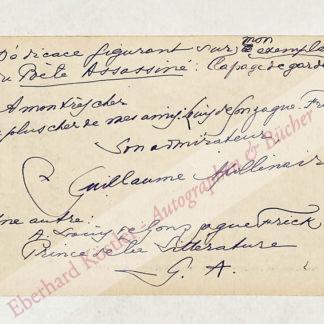 Dédicace figurant sur mon exempla
du Poète Assassiné : la page de garde
A mon très cher
plus cher de mes amis, Louis de Gonzague - Fri
Son admirateur
Guillaume Apollinaire
Une autre :
A Louis de Gonzague Frick
Prince de la Littérature
G. A.
Eberhard Köstler Autographen & Bücher